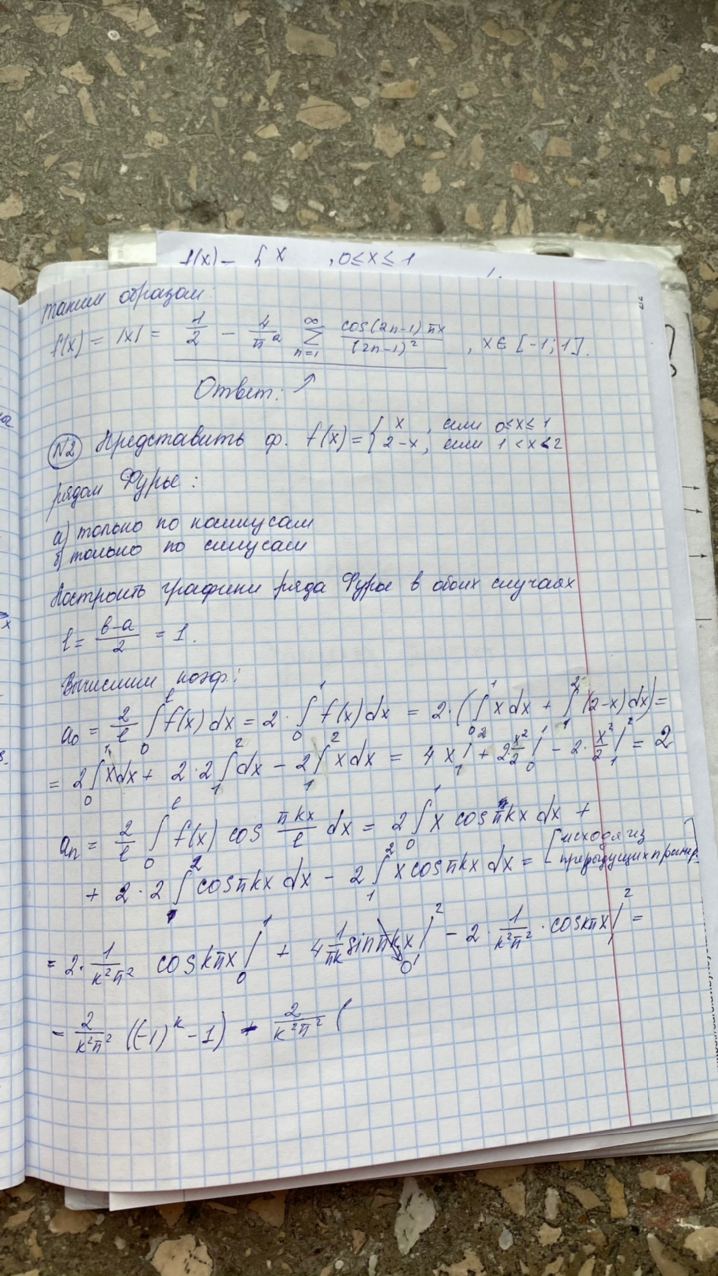 f(x) = { x , 0≤x≤1
таким образом:
f(x) = |x| = 1/2 - 4/π² ∑_{n=1}^{∞} cos(2n-1)πx / (2n-1)² , x∈[-1;1].
Ответ: ↗
N2 Представить ф. f(x) = { x , если 0≤x≤1
2-x, если 1<x≤2
рядом Фурье:
а) только по косинусам
б) только по синусам
Построить графики ряда Фурье в обоих случаях
l = (b-a)/2 = 1.
Вычислим коэф.:
a₀ = 2/l ∫₀^l f(x)dx = 2·∫₀^1 f(x)dx = 2·(∫₀^1 x dx + ∫₁^2 (2-x)dx) =
= 2∫₀^1 x dx + 2·2∫₁^2 dx - 2∫₁^2 x dx = 4x|₁^2 + 2 x²/2|₀^1 - 2·x²/2|₁^2 = 2
aₙ = 2/l ∫₀^l f(x) cos πkx/l dx = 2∫₀^1 x cos πkx dx +
+ 2·2∫₁^2 cos πkx dx - 2∫₁^2 x cos πkx dx = [исходя из
предыдущих пример.]
= 2·1/(k²π²) cos kπx|₀^1 + 4 1/(πk) sin πkx|₁^2 - 2·1/(k²π²)·cos kπx|₁^2 =
= 2/(k²π²) ((-1)^k - 1) - 2/(k²π²) (